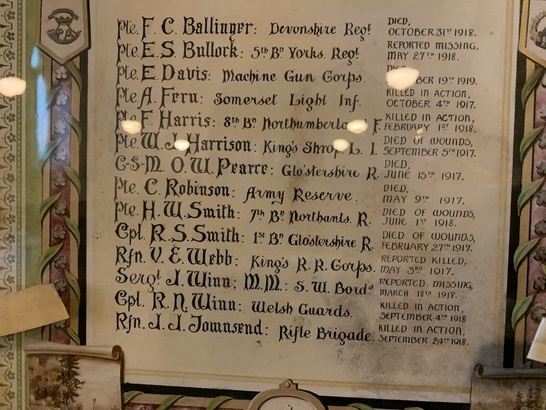 Pte. F. C. Ballinger: Devonshire Regt. DIED, OCTOBER 31ST 1918.
Pte. E. S. Bullock: 5th Bn. Yorks. Regt. REPORTED MISSING, MAY 27TH 1918.
Pte. E. Davis: Machine Gun Corps. 19TH 1919.
Pte. A. Fern: Somerset Light Inf. KILLED IN ACTION, OCTOBER 4TH 1917.
Pte. F. Harris: 8th Bn. F. KILLED IN ACTION, FEBRUARY 1918.
Pte. W. J. Harrison: King's L. I. DIED OF WOUNDS, SEPTEMBER 5TH 1917.
C-S-M. O. W. Pearce: Glo'stershire R. DIED, JUNE 15TH 1917.
Pte. C. Robinson: Army Reserve. DIED, MAY 9TH 1917.
Pte. H. W. Smith: 7th Bn. Northants. R. DIED OF WOUNDS, JUNE 1ST 1918.
Cpl. R. S. Smith: 1st Bn. Glo'stershire R. DIED OF WOUNDS, FEBRUARY 27TH 1917.
Rfn. V. E. Webb: King's R. R. Corps. REPORTED KILLED, MAY 3RD 1917.
Sergt. J. Winn; M.M.: S. W. Bords. REPORTED MISSING, MARCH 18TH 1918.
Cpl. R. N. Winn: Welsh Guards. KILLED IN ACTION, SEPTEMBER 4TH 1918
Rfn. J. J. Townsend: Rifle Brigade. KILLED IN ACTION, SEPTEMBER 24TH 1918.